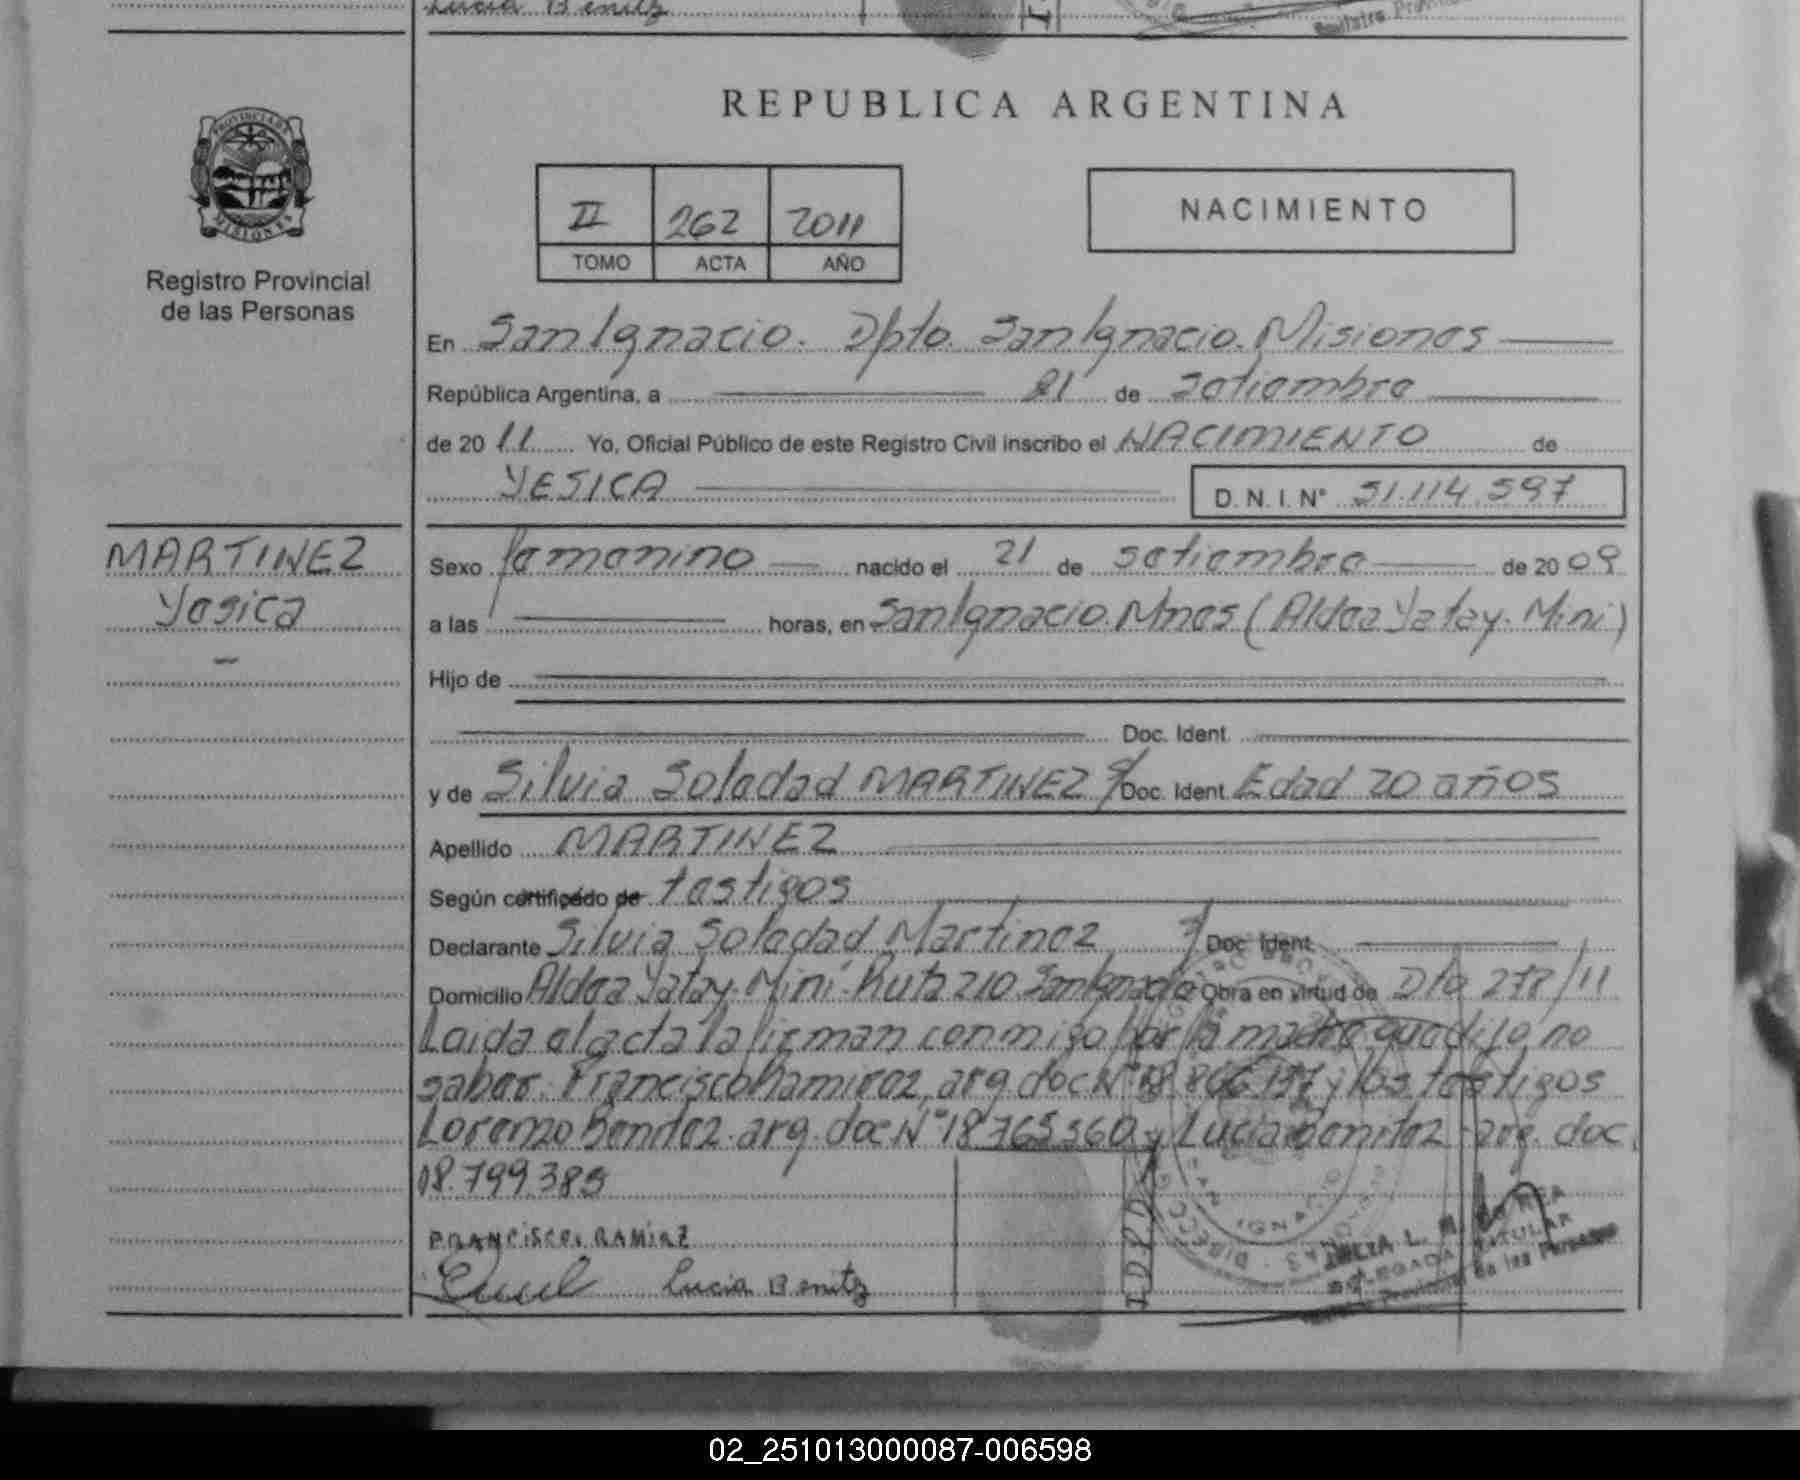 Lucia Benitz
REPUBLICA ARGENTINA
PROVINCIA DE
MISIONES
Registro Provincial
de las Personas
II 262 2011
TOMO ACTA AÑO
NACIMIENTO
En San Ignacio. Dpto. San Ignacio. Misiones
República Argentina, a 21 de setiembre
de 2011 Yo, Oficial Público de este Registro Civil inscribo el NACIMIENTO de
YESICA D.N.I.N° 51.114.597
MARTINEZ
Yesica
Sexo femenino nacido el 21 de setiembre de 2009
a las horas, en San Ignacio. Mnes (Aldea Yatay. Mini)
Hijo de
Doc. Ident.
y de Silvia Soledad MARTINEZ s/ Doc. Ident. Edad 20 años
Apellido MARTINEZ
Según certificado de testigos
Declarante Silvia Soledad Martinez s/ Doc. Ident.
Domicilio Aldea Yatay. Miní. Ruta 210. San Ignacio Obra en virtud de Dto 278/11
Leida el acta la firman conmigo por la madre que dijo no
saber. Francisco Ramirez, arg. doc N° 18.806.137 y los testigos
Lorenzo Benitez. arg. doc N° 18.765.360 y Lucia Benitez. arg. doc.
18.799.389
FRANCISCO RAMIRZ
Lucia Benitz
SAN IGNACIO
DELEGADA TITULAR
Registro Provincial de las Personas
02_251013000087-006598